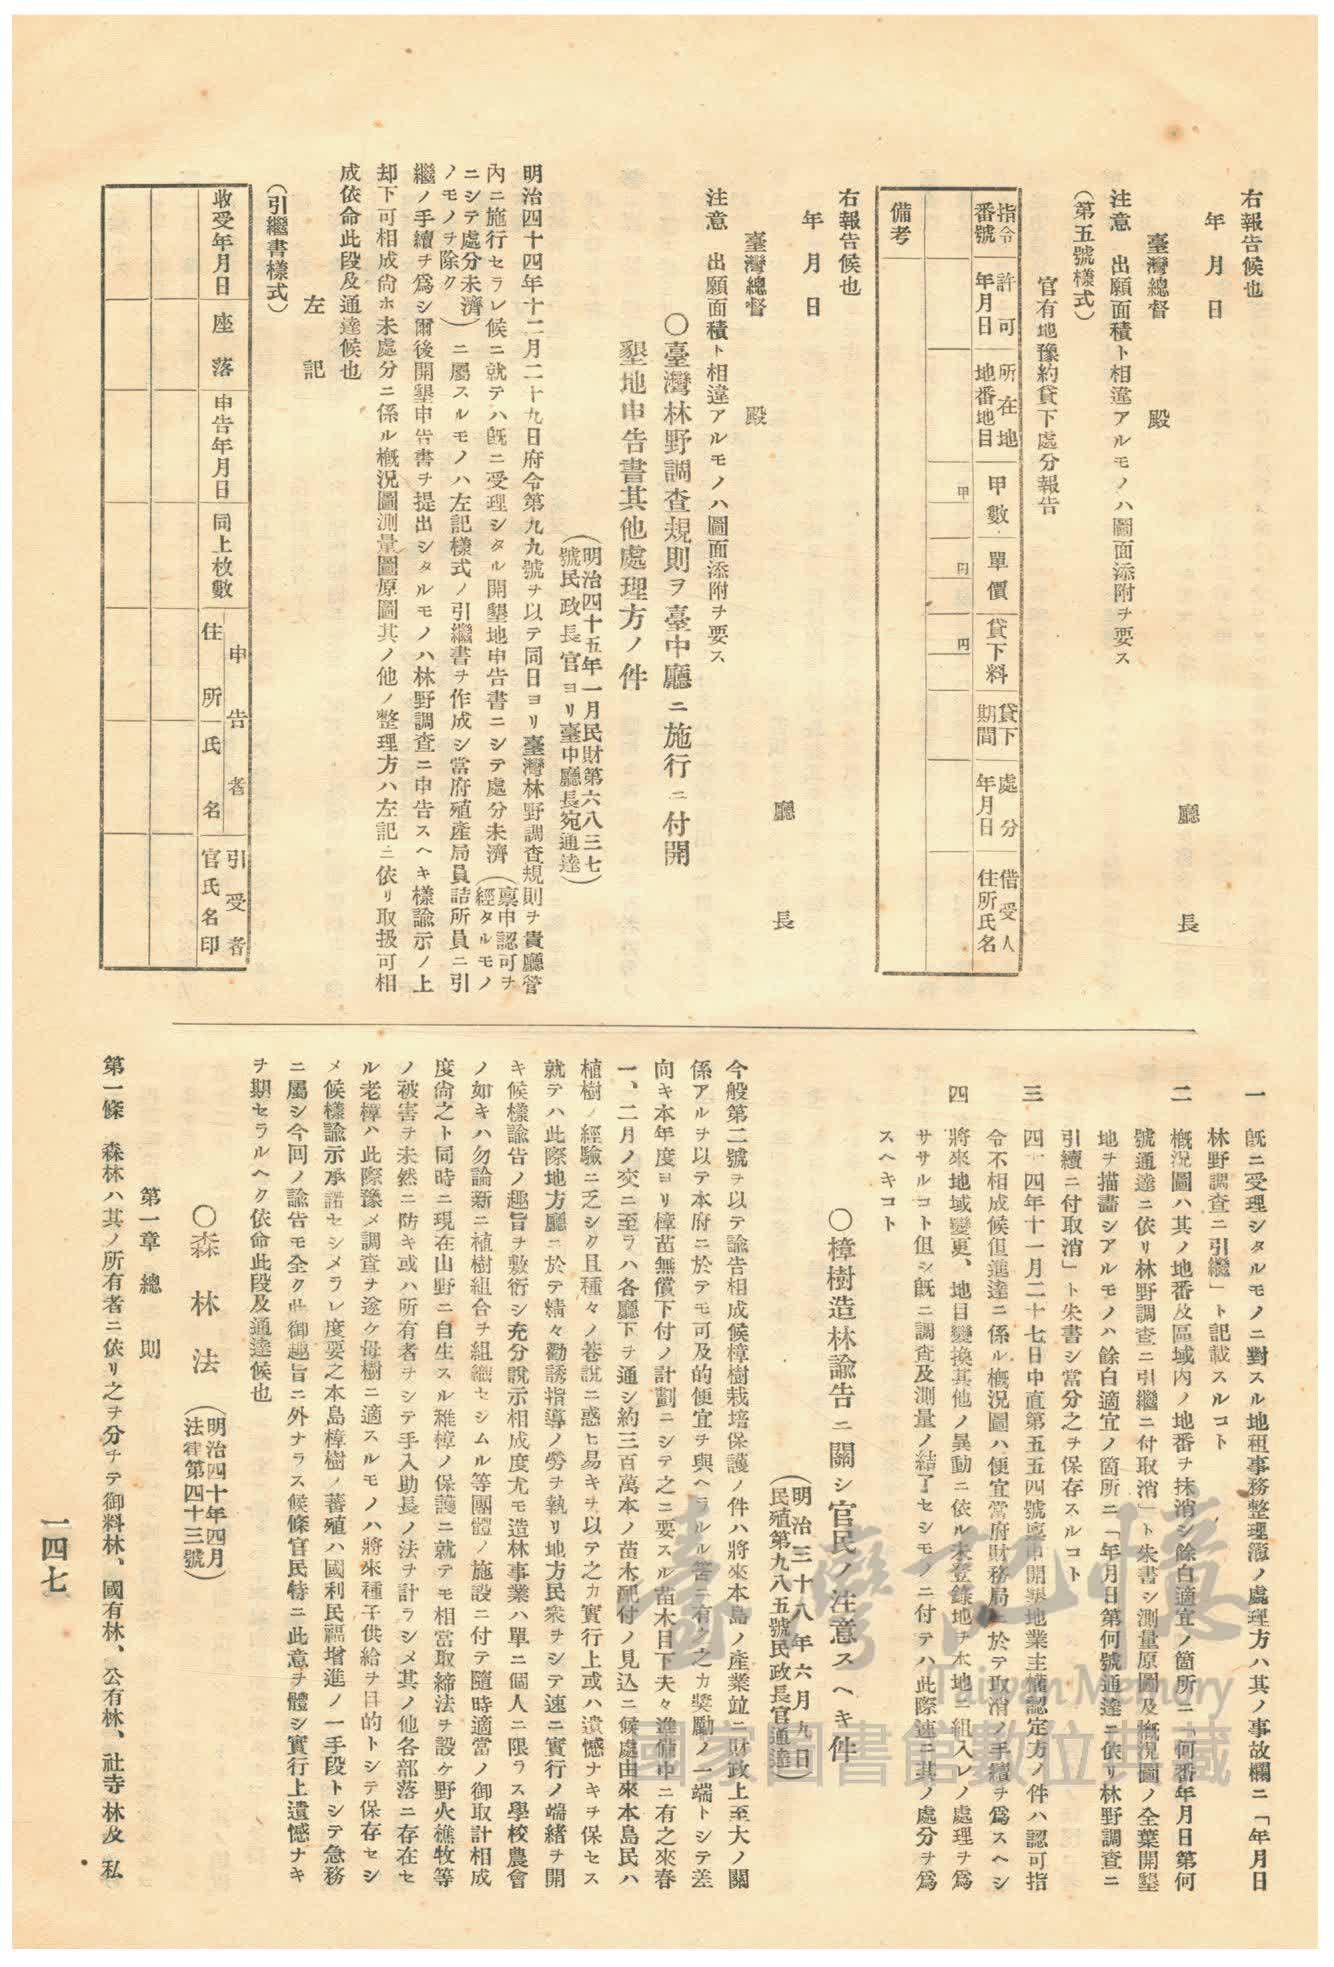 右報告候也
年　月　日
廳　長
臺灣總督　殿
注意　出願面積ト相違アルモノハ圖面添附ヲ要ス
(第五號樣式)
官有地豫約貸下處分報告
指令番號
許可年月日
所在地地番地目
甲數
單價
貸下料
貸下期間
處分年月日
借受人住所氏名
甲
円
円
備考
右報告候也
年　月　日
廳　長
臺灣總督　殿
注意　出願面積ト相違アルモノハ圖面添附ヲ要ス
○臺灣林野調查規則ヲ臺中廳ニ施行ニ付開
墾地申告書其他處理方ノ件
(明治四十五年一月民財第六八三七
號民政長官ヨリ臺中廳長宛通達)
明治四十四年十二月二十九日府令第九九號ヲ以テ同日ヨリ臺灣林野調查規則ヲ貴廳管
內ニ施行セラレ候ニ就テハ旣ニ受理シタル開墾地申告書ニシテ處分未濟(稟申認可ヲ經タルモノ
ニシテ處分未濟ノモノヲ除ク)ニ屬スルモノハ左記樣式ノ引繼書ヲ作成シ當府殖產局員詰所員ニ引
繼ノ手續ヲ爲シ爾後開墾申告書ヲ提出シタルモノハ林野調查ニ申告スヘキ樣諭示ノ上
却下可相成尙ホ未處分ニ係ル槪況圖測量圖原圖其ノ他ノ整理方ハ左記ニ依リ取扱可相
成依命此段及通達候也
左　記
(引繼書樣式)
收受年月日
座落
申告年月日
同上枚數
申告者
住所
氏名
引受者
官氏名印
一　旣ニ受理シタルモノニ對スル地租事務整理簿ノ處理方ハ其ノ事故欄ニ「年月日
林野調查ニ引繼」ト記載スルコト
二　槪況圖ハ其ノ地番及區域內ノ地番ヲ抹消シ餘白適宜ノ箇所ニ「何番年月日第何
號通達ニ依リ林野調查ニ引繼ニ付取消」ト朱書シ測量原圖及槪況圖ノ全葉開墾
地ヲ描畫シアルモノハ餘白適宜ノ箇所ニ「年月日第何號通達ニ依リ林野調查ニ
引續ニ付取消」ト朱書シ當分之ヲ保存スルコト
三　四十四年十一月二十七日中直第五五四號稟申開墾地業主權認定方ノ件ハ認可指
令不相成候但進達ニ係ル槪況圖ハ便宜當府財務局ニ於テ取消ノ手續ヲ爲スヘシ
四　將來地域變更、地目變換其他ノ異動ニ依ル未登錄地ヲ本地ニ組入レノ處理ヲ爲
サヽルコト但シ旣ニ調查及測量ノ結了セシモノニ付テハ此際速ニ其ノ處分ヲ爲
スヘキコト
○樟樹造林諭告ニ關シ官民ノ注意スヘキ件
(明治三十八年六月九日
民殖第九八五號民政長官通達)
今般第二號ヲ以テ諭告相成候樟樹栽培保護ノ件ハ將來本島ノ產業竝ニ財政上至大ノ關
係アルヲ以テ本府ニ於テモ可及的便宜ヲ與ヘラルル筈ニ有之カ獎勵ノ一端トシテ差
向キ本年度ヨリ樟苗無償下付ノ計劃ニシテ之ニ要スル苗木目下夫々準備中ニ有之來春
一、二月ノ交ニ至ラハ各廳下ヲ通シ約三百萬本ノ苗木配付ノ見込ニ候處由來本島民ハ
植樹ノ經驗ニ乏シク且種々ノ巷說ニ惑ヒ易キヲ以テ之カ實行上或ハ遺憾ナキヲ保セス
就テハ此際地方廳ニ於テ精々勸誘指導ノ勞ヲ執リ地方民衆ヲシテ速ニ實行ノ端緖ヲ開
キ候樣諭吿ノ趣旨ヲ敷衍シ充分說示相成度尤モ造林事業ハ單ニ個人ニ限ラス學校農會
ノ如キハ勿論新ニ植樹組合ヲ組織セシムル等團體ノ施設ニ付テ隨時適當ノ御取計相成
度尙之ト同時ニ現在山野ニ自生スル稚樟ノ保護ニ就テモ相當取締法ヲ設ケ野火樵牧等
ノ被害ヲ未然ニ防キ或ハ所有者ヲシテ手入助長ノ法ヲ計ラシメ其ノ他各部落ニ存在セ
ル老樟ハ此際豫メ調查ヲ遂ケ母樹ニ適スルモノハ將來種子供給ヲ目的トシテ保存セシ
メ候樣諭示承諾セシメラレ度要之本島樟樹ノ蕃殖ハ國利民福增進ノ一手段トシテ急務
ニ屬シ今回ノ諭告モ全ク此御趣旨ニ外ナラス候條官民特ニ此意ヲ體シ實行上遺憾ナキ
ヲ期セラルヘク依命此段及通達候也
○森林法
(明治四十年四月
法律第四十三號)
第一章　總　則
第一條　森林ハ其ノ所有者ニ依リ之ヲ分チテ御料林、國有林、公有林、社寺林及私
一四七
臺灣記憶
Taiwan Memory
國家圖書館數位典藏